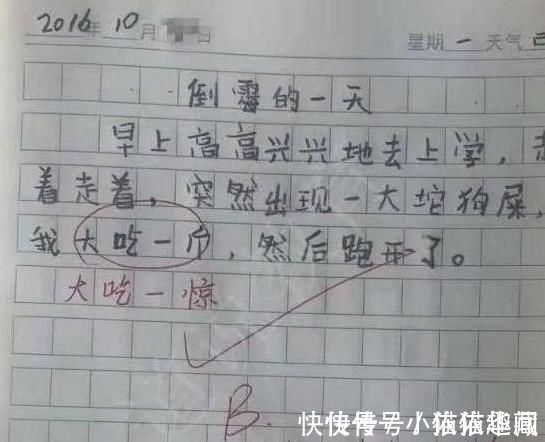 2016年 10月 日
星期 一 天气
倒霉的一天
早上高高兴兴地去上学，走
着走着，突然出现一大坨狗屎，
我大吃一斤，然后跑开了。
大吃一惊
B.
快传号·小猿猿趣闻